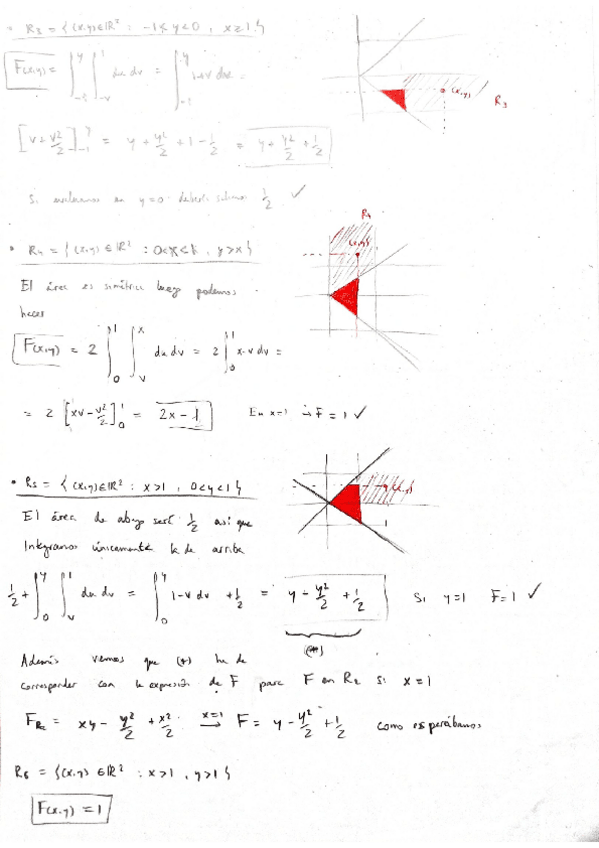 • R₃ = { (x,y) ∈ ℝ² : -1 < y < 0 , x ≥ 1 }
F(x,y) = ∫_{-1}^{y} ∫_{-v}^{1} du dv = ∫_{-1}^{y} 1+v dv =
R₃
(x,y)
[v + v²/2]_{-1}^{y} = y + y²/2 + 1 - 1/2 = y + y²/2 + 1/2
Si evaluamos en y=0 debería salirnos 1/2 ✓
R₄
(x,y)
• R₄ = { (x,y) ∈ ℝ² : 0<x<1 , y>x }
El área es simétrica luego podemos
hacer
F(x,y) = 2 ∫_{0}^{1} ∫_{v}^{x} du dv = 2 ∫_{0}^{1} x-v dv =
= 2 [xv - v²/2]_{0}^{1} = 2x - 1 En x=1 → F = 1 ✓
• R₅ = { (x,y) ∈ ℝ² : x>1 , 0<y<1 }
(x,y)
El área de abajo será 1/2 así que
Integramos únicamente la de arriba
1/2 + ∫_{0}^{y} ∫_{v}^{1} du dv = ∫_{0}^{y} 1-v dv + 1/2 = y - y²/2 + 1/2 Si y=1 F=1 ✓
(*)
Además vemos que (*) ha de
corresponder con la expresión de F para F en R₂ si x=1
F_{R₂} = xy - y²/2 + x²/2 →^{x=1} F = y - y²/2 + 1/2 como esperábamos
R₆ = { (x,y) ∈ ℝ² : x>1 , y>1 }
F(x,y) = 1